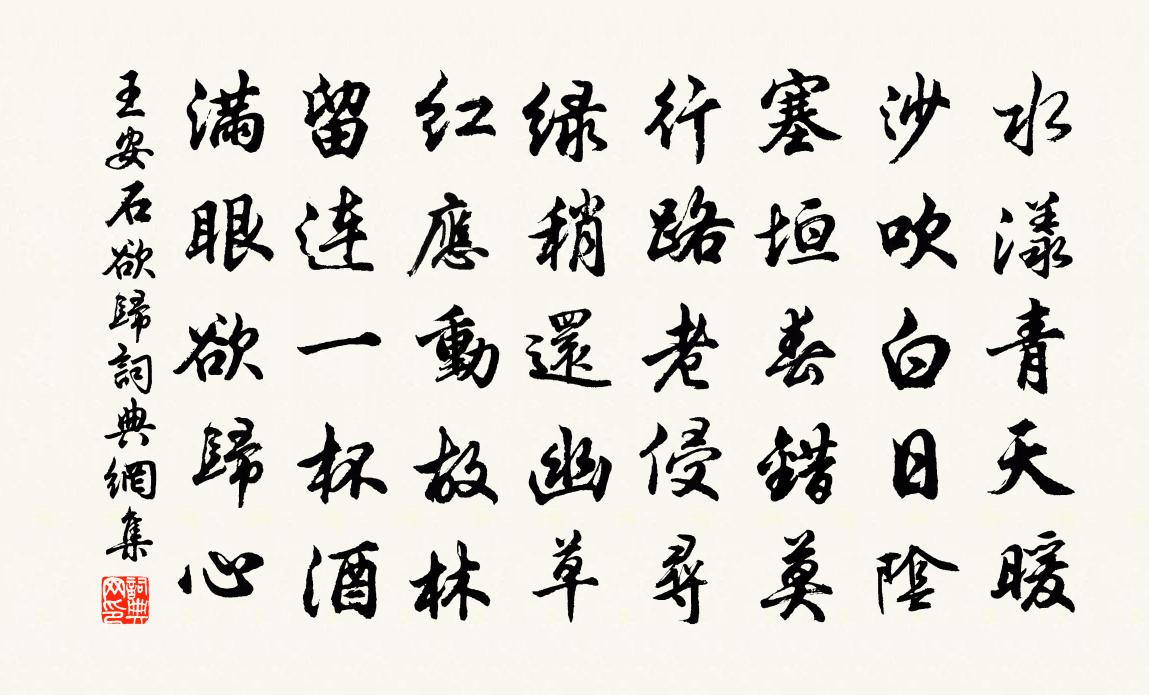 水漾青天暖
沙吹白日陰
塞垣春錯莫
行路老侵尋
绿稍還幽草
红應動故林
留連一杯酒
滿眼欲歸心
王安石欲歸詞典網集
詞典网印